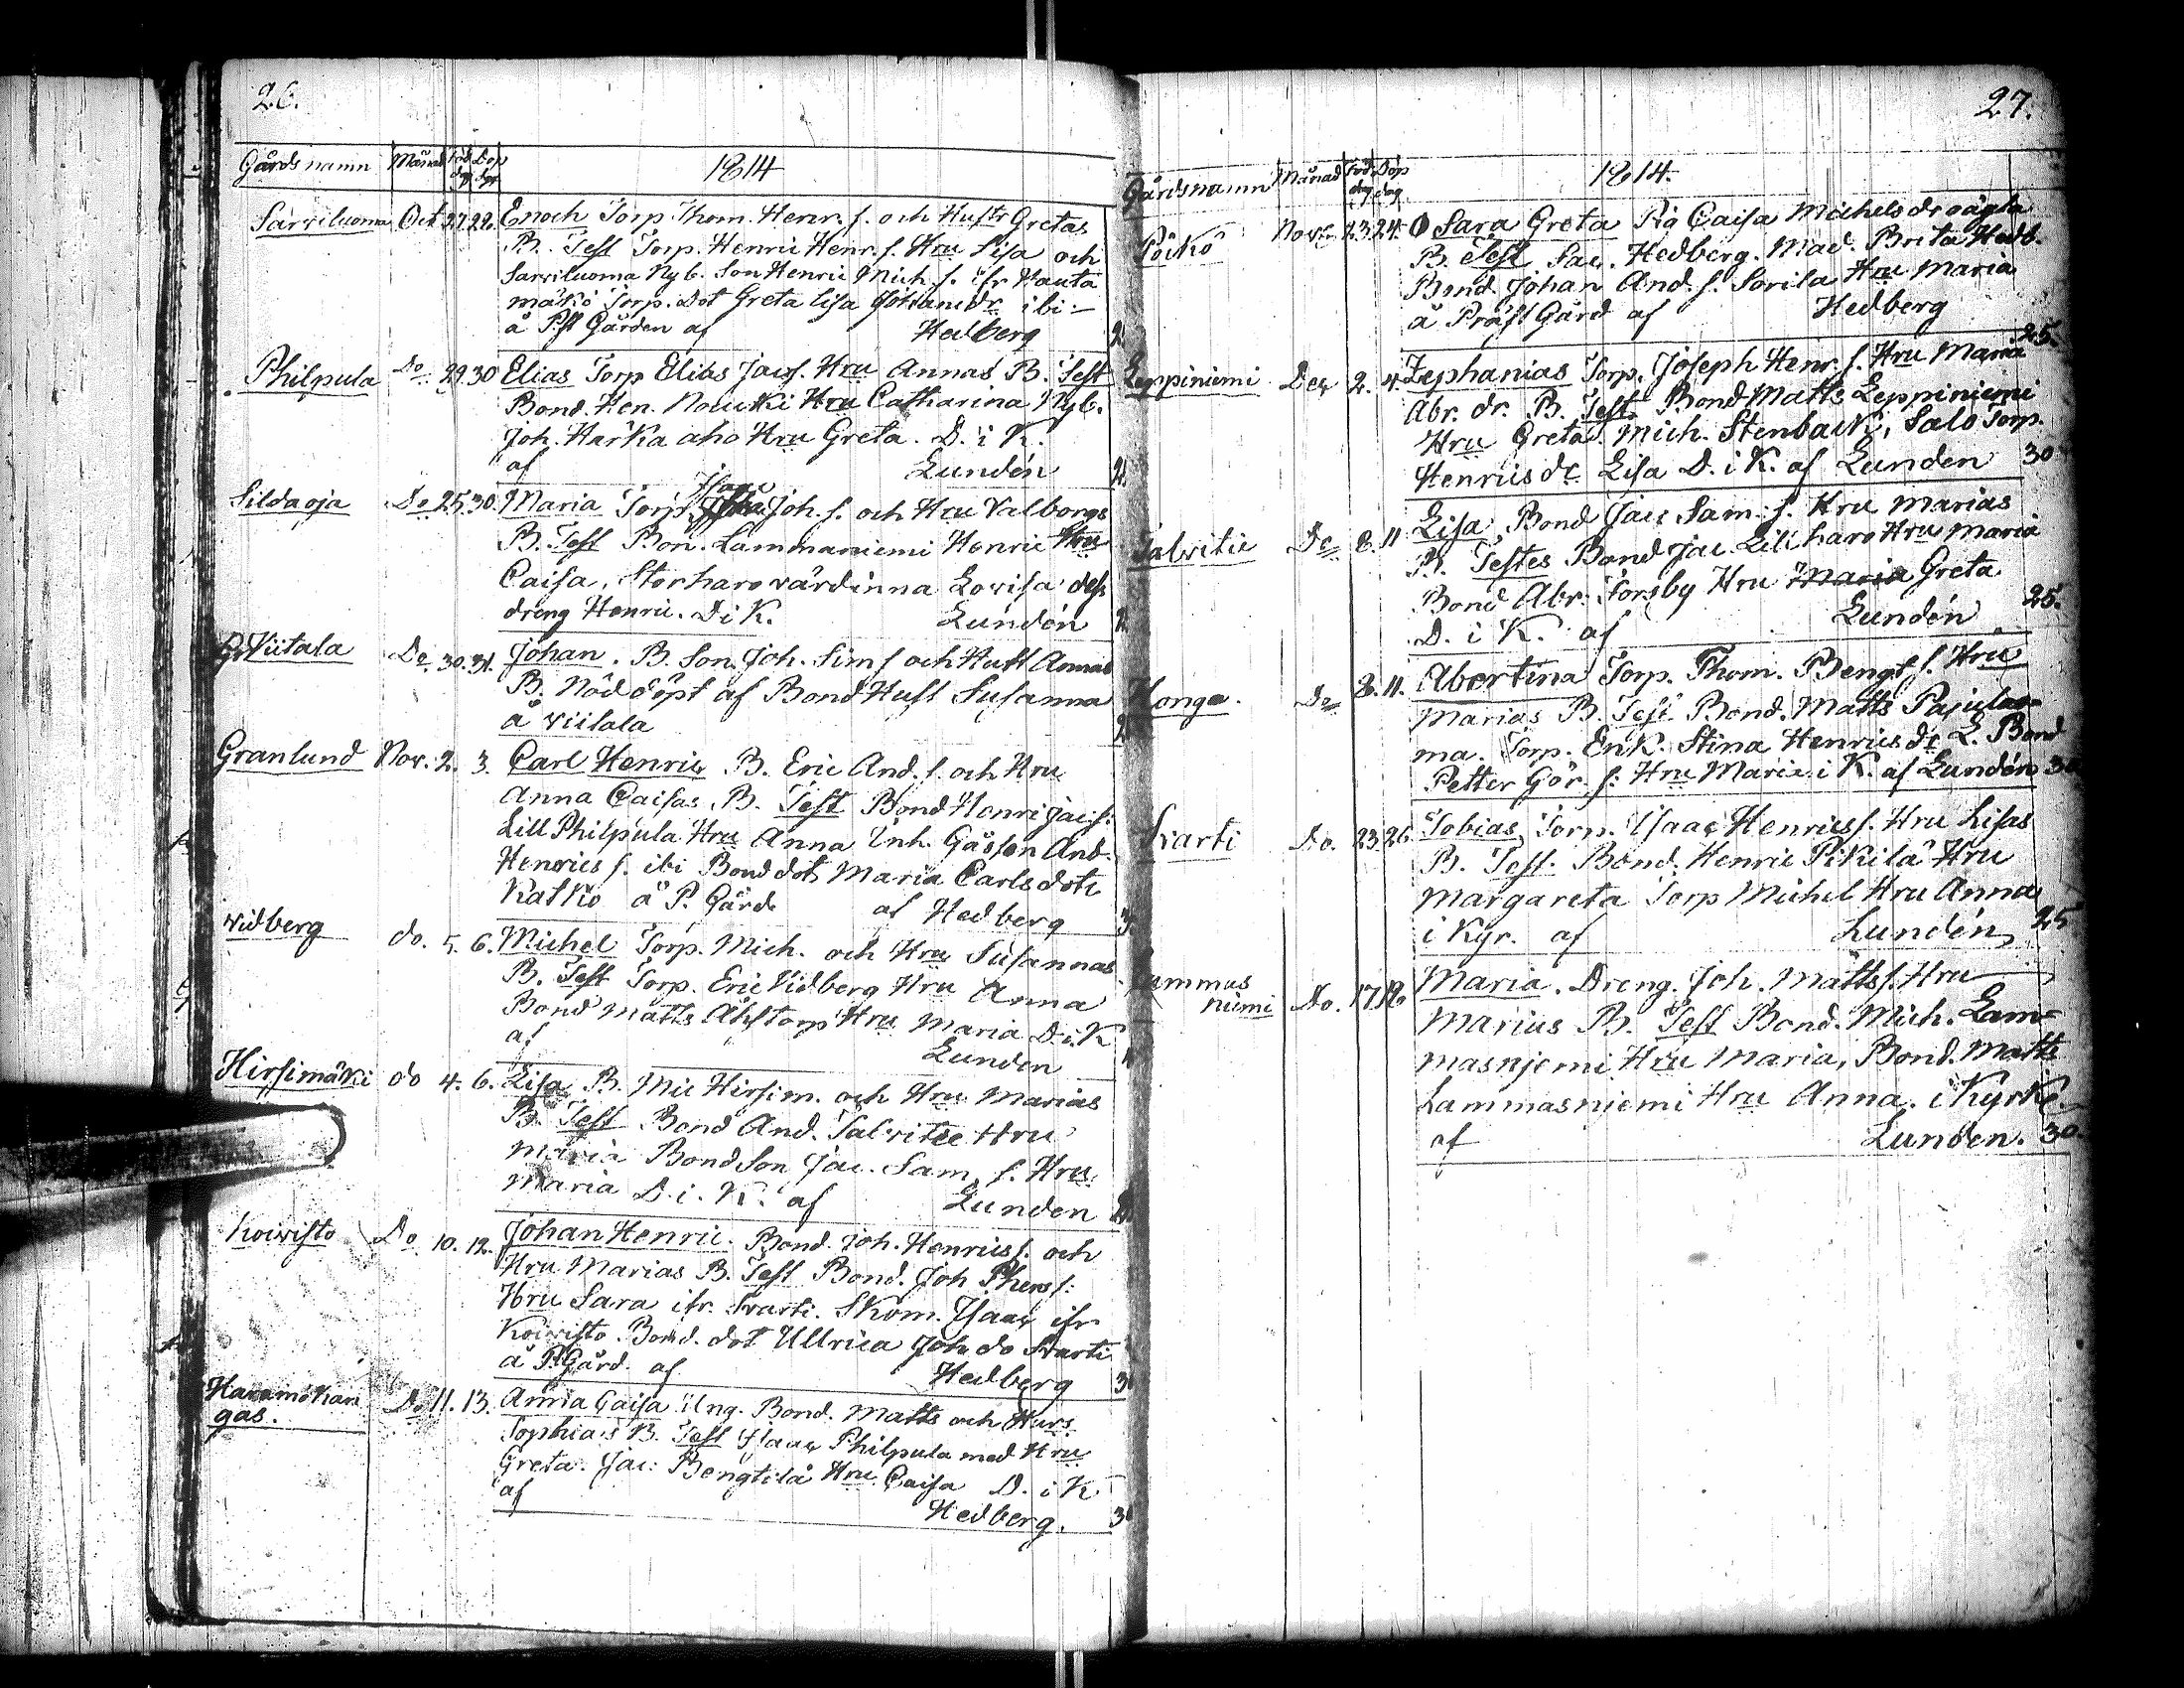 26.
Gårds namn Månad Föd dag Döp dgr 1814
Sarviluoma Oct 27. 28. Enoch Torp Thom. Henr. s. och Hustr Gretas
B. Test Torp. Henric Henr. s. Hru Lisa och
Sarviluoma Nyb. Son Henric Mich s. ifr Hauta
mäkö Torp. Dot Greta Lisa Johansdr ibi
å Pst Gården af Hedberg
Philpula Do 29. 30 Elias Torp Elias Jac s. Hru Annas B. Test
Bond. Hen. Hru Catharina Nyb.
Joh. Harkaaho Hru Greta. D. i K.
af Lundén
Sildaoja Do 25. 30. Maria Torp. Isaac Joh. s. och Hru Valborgs
B. Test Bon. Lammaniemi Henric Hru
Caisa, Storharo värdinna Lovisa dess
dreng Henric. D i K. Lundén
Gr Viitala Do. 30. 31. Johan. B. Son Joh. Sim s och Hust Annas
B. Nöd döpt af Bond Hust Susanna
å Viitala
Granlund Nov. 2. 3. Carl Henric B. Eric And. s. och Hru
Anna Caisas, B. Test Bond Henric Jac. s.
Lill Philpula Hru Anna Inh. Gåsson And.
Henrics s. ibi Bonddot Maria Carls dotr
Katko å P. Gård af Hedberg
Widberg do. 5. 6. Michel Torp. Mich. och Hru Susannas
B. Test Torp. Eric Vidberg Hru Anna
Bond Matts Åhlstorp Hru Maria D. i. K
af Lunden
Hirsimäki do 4. 6. Lisa B. Mic Hirsim. och Hru Marias
B. Test Bond And. Talvitie Hru
Maria Bondson Jac. Sam. s. Hru
Maria D. i. K. af Lunden
Koivisto Do 10. 12. Johan Henric. Bond. Joh. Henrics s. och
Hru Marias B. Test Bond. Joh s.
Hru Sara ifr. Svarti. Skom. Isaac ifr
Koivisto. Bond. dot Ullrica Joh. do Svarti
å P. Gård. af Hedberg
gas. Do 11. 13. Anna Caisa Ung. Bond. Matts och Hurs
Sophias B. Test Isaac Philpula med Hru
Greta. Jac: Bengtilä Hru Caisa D. i K
af
Hedberg.
27.
Gårdsnamn Månad Föd dag Döp dag 1814.
Pöikö Nov. 23. 24. O Sara Greta Pig Caisa Michels dr oägta
B. Test Sac. Hedberg. Mad. Brita Hedb.
Bond. Johan And. s. Sorila Hru Maria
å Präst Gård af Hedberg
25.
Leppiniemi Dec 2. 4. Zephanias Torp. Joseph Henr. s. Hru Maria
Abr. dr. B. Test Bond Matts Leppiniemi
Hru Greta. Mich. Stenback, Salo Torp.
Henrics dr Lisa D. i K. af Lunden 30
Talvitie Do 8. 11 Lisa, Bond Jac Sam. s. Hru Marias
B. Testes Bond Jac. Lillharo Hru Maria
Bond Abr. Forsby Hru Maria Greta
D. i K. af Lundén 25.
Honga. Do 8. 11. Abertina Torp. Thom. Bengt s. Hru
Marias B. Test Bond. Matts Pajuluo-
ma. Torp. Enk. Stina Henrics dr L. Bond
Petter Gör. s. Hru Maria i K. af Lundén 30
Svarti Do. 23. 26 Tobias, Torp. Isaac Henrics s. Hru Lisas
B. Test. Bond. Henric Pikilä Hru
Margareta Torp Michel Hru Anna
i Kyr. af Lundén 25
Lammas
niemi Do. 17. 18 Maria. Dreng. Joh. Matts s. Hru
Marias B. Test Bond. Mich. Lam-
masnjemi Hru Maria, Bond. Matts
Lammasniemi Hru Anna. i Kyrk.
af Lunden. 30.